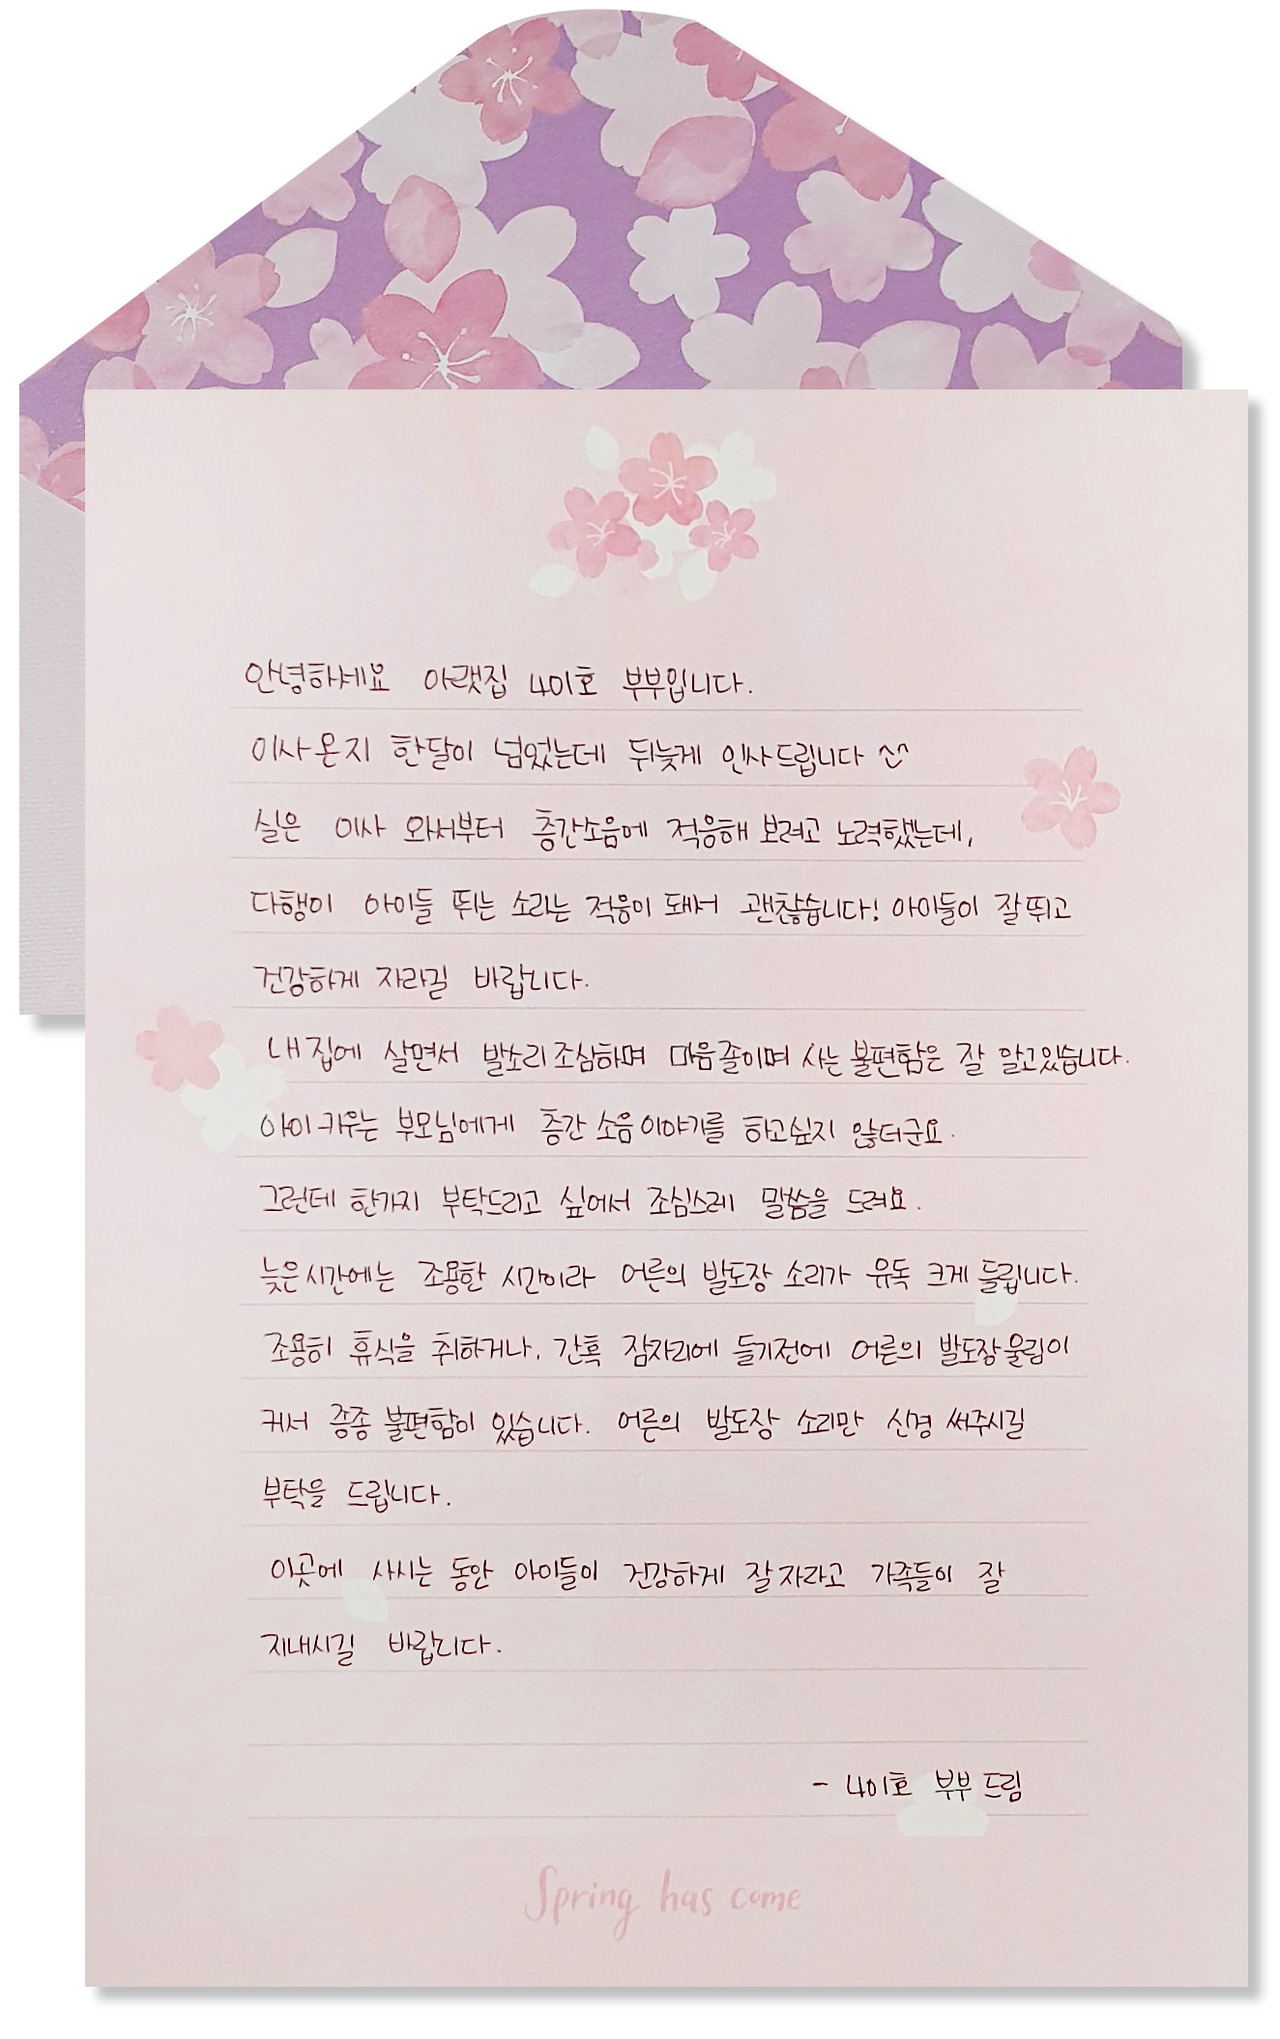 안녕하세요 아랫집 401호 부부입니다.
이사온지 한달이 넘었는데 뒤늦게 인사드립니다 ^^
실은 이사 와서부터 층간소음에 적응해 보려고 노력했는데,
다행이 아이들 뛰는 소리는 적응이 돼서 괜찮습니다! 아이들이 잘뛰고
건강하게 자라길 바랍니다.
내집에 살면서 발소리 조심하며 마음졸이며 사는 불편함은 잘 알고있습니다.
아이 키우는 부모님에게 층간 소음이야기를 하고싶지 않더군요.
그런데 한가지 부탁드리고 싶어서 조심스레 말씀을 드려요.
늦은시간에는 조용한 시간이라 어른의 발도장 소리가 유독 크게 들립니다.
조용히 휴식을 취하거나, 간혹 잠자리에 들기전에 어른의 발도장울림이
커서 종종 불편함이 있습니다. 어른의 발도장 소리만 신경 써주시길
부탁을 드립니다.
이곳에 사시는 동안 아이들이 건강하게 잘자라고 가족들이 잘
지내시길 바랍니다.
- 401호 부부 드림
Spring has come